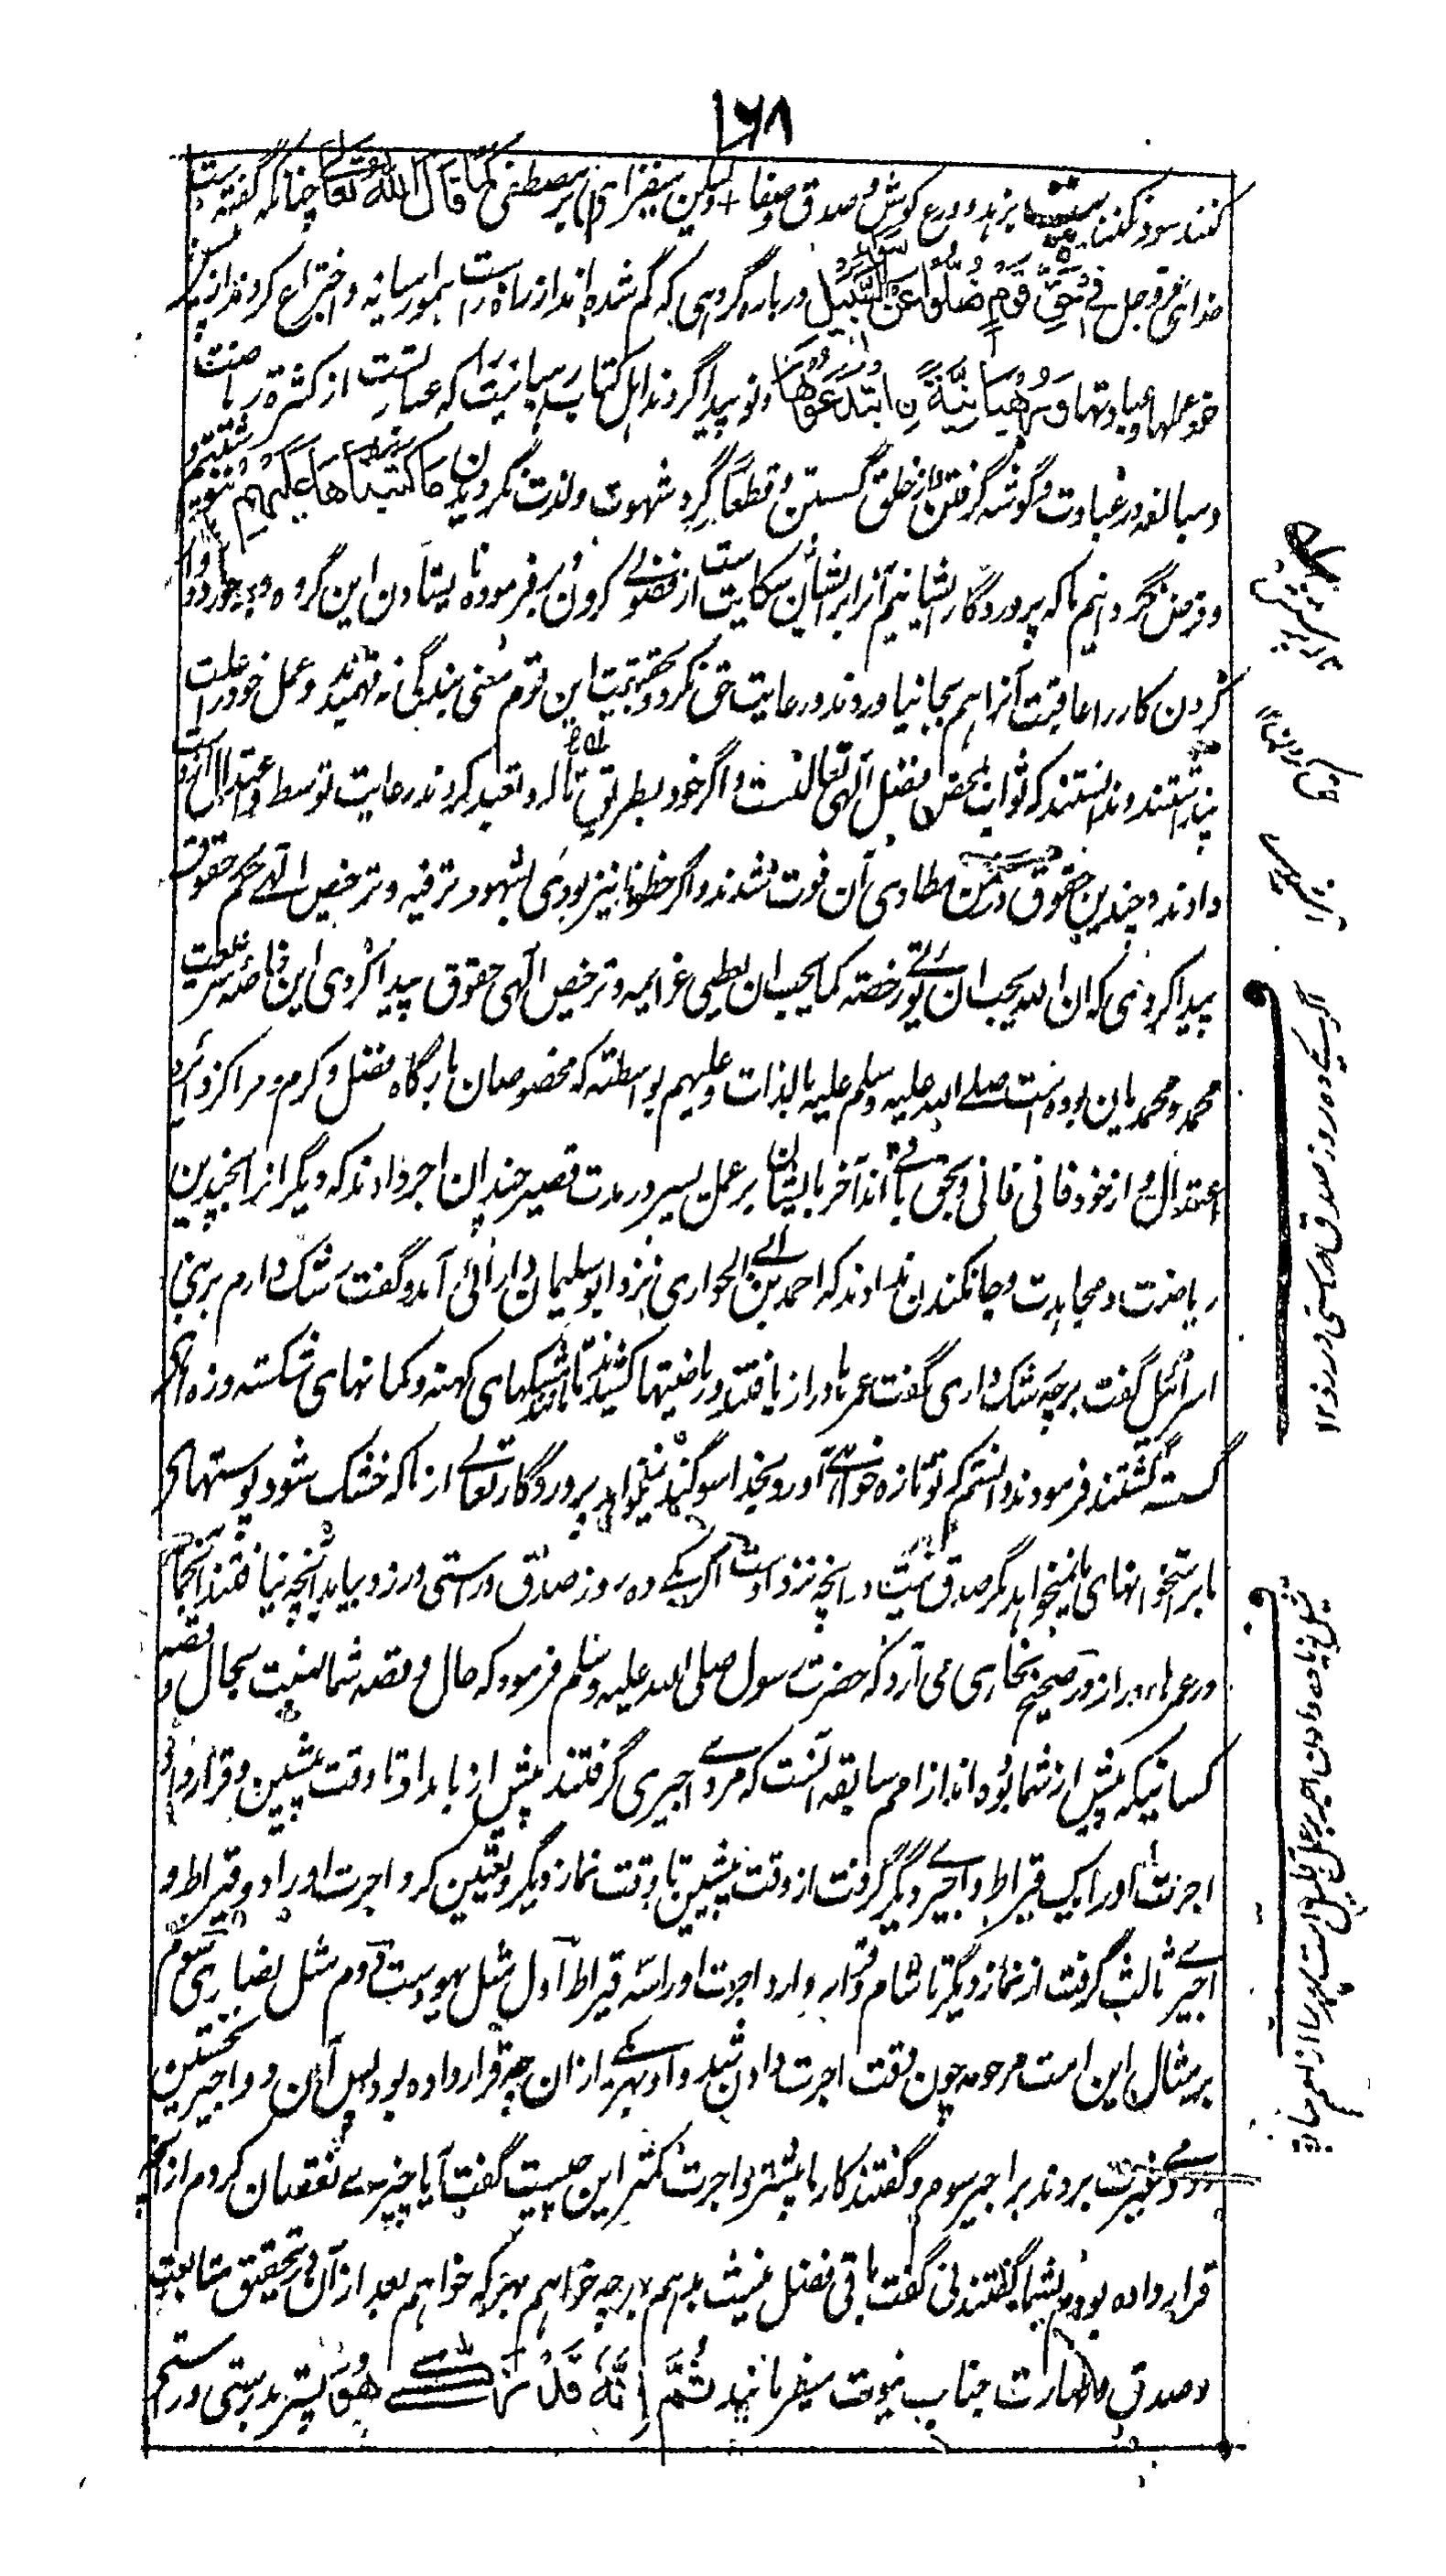 ۱۶۸
کنند سود نکنند بزهد و ورع کوش و صدق و صفا + ولیکن میفزای بر مصطفی کما قال الله تعالی چنانکه گفته است
خدای عزوجل فی حق قوم ضلوا عن سواء السبیل درباره گروهی که گم شده اند از راه راست و اختراع کردند از پیش
خود عملها و عبادتها و رهبانیة ن ابتدعوها و نو پیدا کردند اهل کتاب رهبانیت را که عبارتست از کثرة ریاضت
و مبالغه در عبادت و گوشه گرفتن و از خلق گسستن و قطعا گرد شهوت و لذت نگردیدن ما کتبناها علیهم ننوشتیم
و فرض نگردانیم ما که پروردگار ایشانیم آنرا بر ایشان این شکایت ست از فضولی کردن و بر فرموده نایستادن این گروه و
کردن کار را عاقبت آنرا هم بجا نیاوردند و رعایت حق نکردند و بحقیقت این قوم معنی بندگی نه فهمیدند و عمل خود را علت
پنداشتند و ندانستند که ثواب بمحض فضل الهی تعالی است و اگر خود بطریق تاله و تعبد کردند رعایت توسط و اعتدال از دست
دادند و چندین حقوق در ضمن مطاوی آن فوت شدند و اگر حظوظ نیز بودی بشهود ترفیه و ترخیص الهی حکم حقوق
پیدا کردی که ان الله یحب ان یوتی رخصته کما یحب ان یعطی عزایمه و ترخیص الهی حقوق پیدا کردی این خاصه شریعت
محمد و محمدیاین بوده است صلی الله علیه و سلم علیه بالذات و علیهم بواسطته که مخصوصان بارگاه فضل و کرم و مراکز دائره
اعتدال و از خود فانی فانی و بحق باقی اند آخر بایشان بر عمل یسیر در مدت قصیر چندان اجر دادند که دیگرانرا بچندین
ریاضت و مجاهدت و جانکندن ندادند که احمد بن ابی الحواری نزد ابو سلیمان دارانی آمد و گفت رشک دارم بر بنی
اسرائیل گفت بر چه رشک داری گفت عمرها دراز یافتند و ریاضتها کشیدند تا مانند مشکهای کهنه و کمانهای شکسته و زه های
گسسته گشتند فرمودند دانستم که تو تازه خواهی آورد بخدا سوگند نمیخواهد پروردگار تعالی از ما که خشک شود پوستهای
ما بر استخوانهای ما نمیخواهد مگر صدق نیت در انچه نزد اوست اگر یکی ده روز صدق و راستی ورزد بیابد آنچه نیافتند آنجماعه
در عمرهای دراز و در صحیح بخاری می آرد که حضرت رسول صلی الله علیه وسلم فرمود که حال و قصه شما نسبت بحال و قصه
کسانیکه پیش از شما بوده اند از امم سابقه آنست که مردی اجیری گرفتند پیش از بامداد تا وقت پیشین و قرار داد
اجرت او را یک قیراط و اجیری دیگر گرفت از وقت پیشین تا وقت نماز دیگر و تعیین کرد اجرت او را دو قیراط و
اجیری ثالث گرفت از نماز دیگر تا شام و قرار داد اجرت او را سه قیراط اول مثل یهودست دوم مثل نصاری سوم
بر مثال این امت مرحومه چون وقت اجرت دادن شد داد بهر یکی از ان چه قرار داده بود پس آن دو اجیر نخستین
غیرت بردند بر اجیر سوم و گفتند کار ما بیشتر و اجرت کمتر این چیست گفت آیا چیزی نقصان کردم از آنچه
قرار داده بودم بشما گفتند نی گفت باقی فضل منست بدهم هر چه خواهم بهر که خواهم بعد از آن بتحقیق متابعت
و صدق طهارت جناب نبوت میفرمایند ثم انه قد زکی هو پستر بدرستی و راستی
اگر یکی ده روز صدق و راستی ورزد